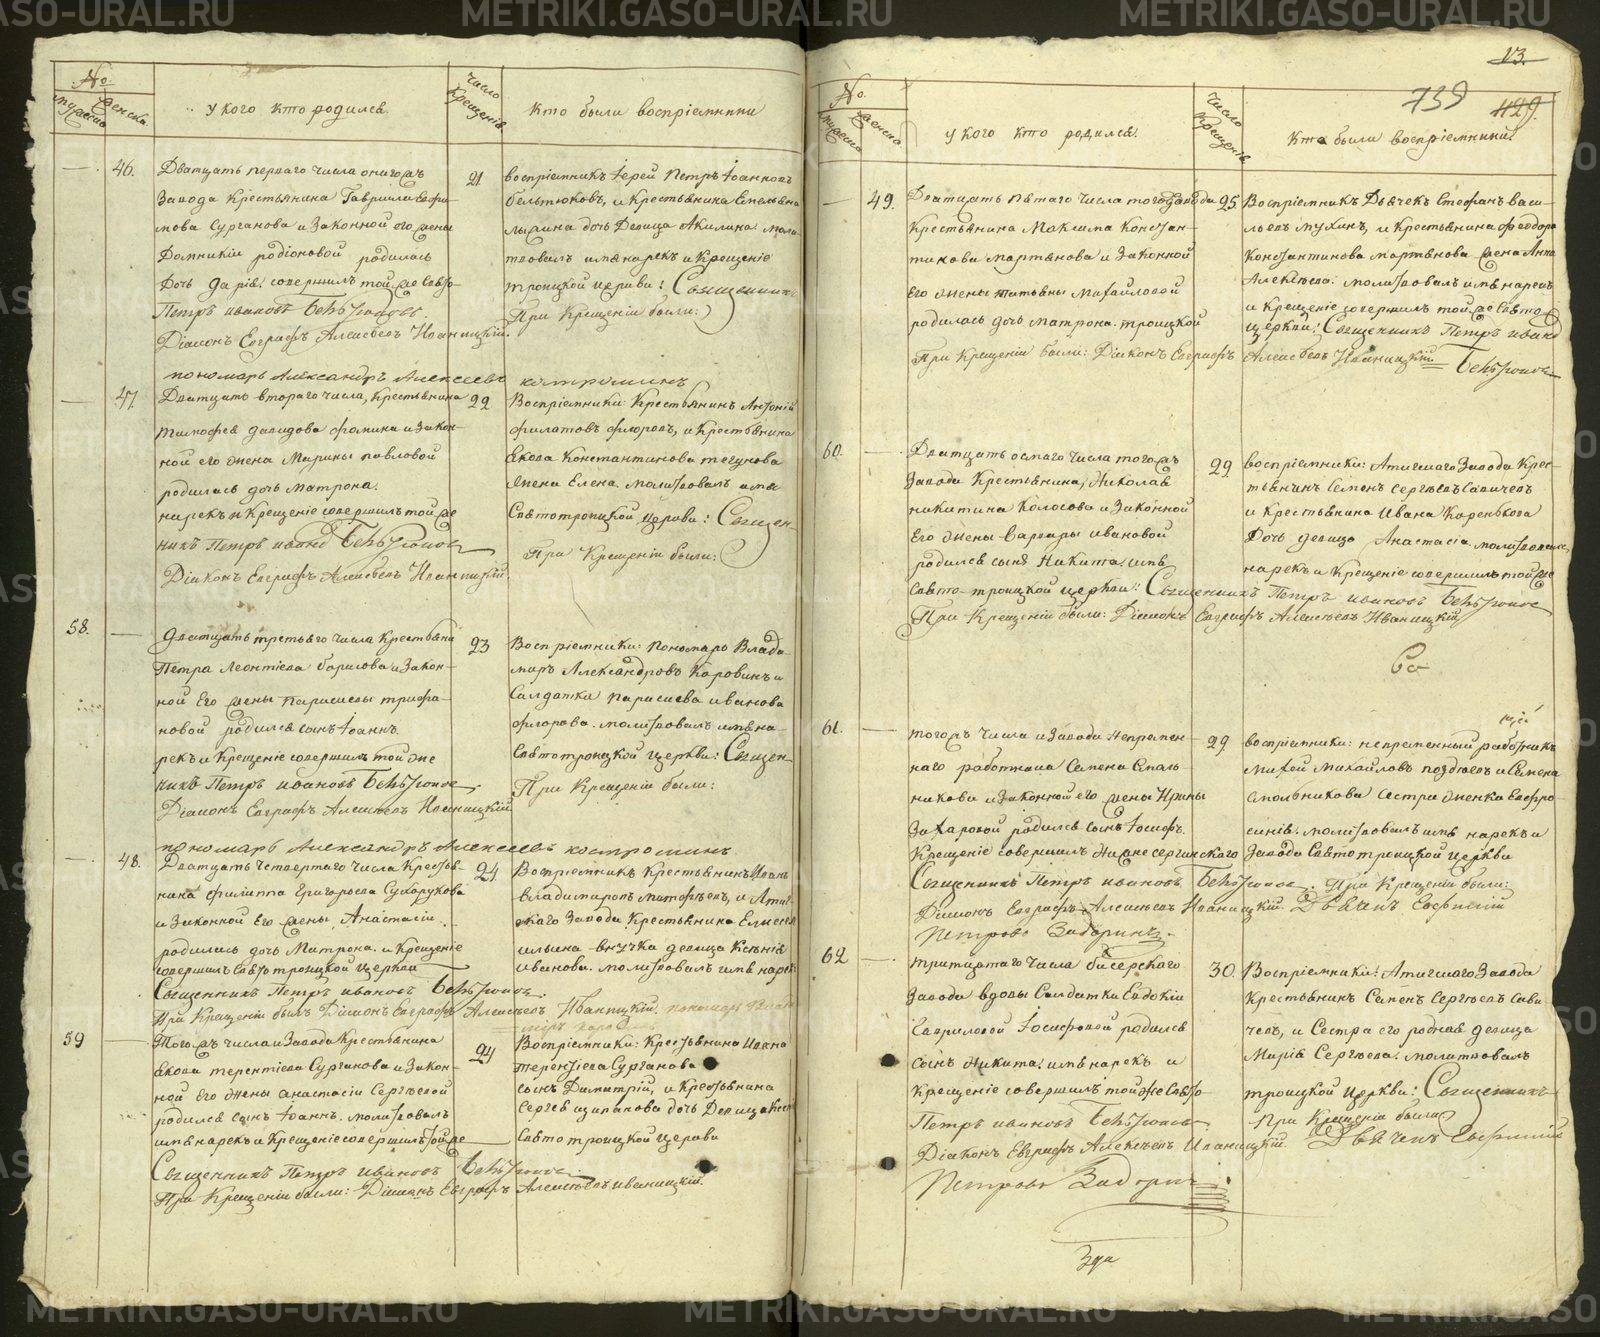 METRIKI.GASO-URAL.RU
No.
мужеска
женска.
У кого кто родился.
Число
Крещенія.
Кто были воспріемники
46.
Дватцать перваго числа оного жъ
Завода Крестьянина Гавриила Евфи-
мова Сурганова и Законной его жены
Домникіи Родіоновой родилась
Дочь Дарія. совершилъ той же Свято-
Петръ Ивановъ
Діаконъ Евграфъ Алексѣевъ Иваницкій.
пономарь Александръ Алексеевъ костромин
21
воспріемникъ Іерей Петръ Іоанновъ
и Крестьянина Емельяна
дочь Девица Акилина. Моли-
твовалъ имя нарекъ и Крещеніе
троицкой церкви: Священникъ
При Крещеніи были:
47.
Дватцать втораго числа, Крестьянина
Тимофея Давидова Фомина и закон-
ной его жена Марины Павловой
родилась дочь Матрона.
нарекъ и Крещеніе совершилъ той же
никъ Петръ Ивано
Діаконъ Евграфъ Алексѣевъ Иваницкій.
22
Воспріемники: Крестьянинъ Антоній
Филатовъ Флоровъ, и Крестьянина
Якова Константинова
Жена Елена. молитвовалъ имя
Святотроицкой Церкви: Священ-
При Крещеніи были:
58.
Дватцать третьяго числа Крестьяни
Петра Леонтіева Борисова и Закон-
ной Его жены Параскевы Трифа-
новой родился сынъ Іоаннъ.
рекъ и Крещеніе совершилъ той же
никъ Петръ Ивановъ
Діаконъ Евграфъ Алексѣевъ Иваницкій
пономарь Александръ Алексеевъ костромин
23
Воспріемники: Пономарь Влади-
миръ Александровъ Коровинъ и
Салдатка Параскева Иванова
Флорова. молитвовалъ имя на-
Святотроицкой Церкви: Священ-
При Крещеніи были:
48.
Дватцать четвертаго числа Крестья-
нина Филиппа Григорьева Сухорукова
и Законной Его жены Анастасіи
родилась дочь Матрона. и Крещеніе
совершилъ Святотроицкой Церкви
Священникъ Петръ Ивановъ
При Крещеніи былъ Діаконъ Евграфъ Алексѣевъ Иваницкій. пономарь Влади
24
Воспріемникъ Крестьянинъ Иванъ
Владимировъ Матфѣевъ, и Атиг-
скаго Завода Крестьянина Елисея
Ильина внучка девица Ксенія
Иванова. молитвовалъ имя нарекъ
59
Того жъ числа и Завода Крестьянина
Якова Терентіева Сурганова и Закон-
ной Его Жены Анастасіи Сергѣевой
родился сынъ Іоаннъ. молитвовалъ
имя нарекъ и Крещеніе совершилъ той же
Священникъ Петръ Ивановъ
При Крещеніи были: Діаконъ Евграфъ Алексѣевъ Иваницкій.
24
Воспріемники: Крестьянина Ивана
Терентіева Сурганова
сынъ Димитрій, и Крестьянина
Сергея Ципанова дочь Девица
Святотроицкой Церкви
13.
739
429.
No.
мужеска
женска
У кого кто родился.
Число
Крещенія
Кто были воспріемники.
49.
Дватцать пятаго числа того Завода
Крестьянина Максима Констан-
тинова Мартьянова и Законной
Его жены Татьяны Михайловой
родилась дочь Матрона. троицкой
При Крещеніи были: Діаконъ Евграфъ Алексѣевъ Иваницкій.
25.
Воспріемникъ Дьячекъ Стефанъ Васи-
льевъ Мухинъ, и Крестьянина Феодора
Константинова Мартьянова жена Анна
Алексѣева. молитвовалъ имя нарекъ
и Крещеніе совершилъ той же Свято
Церкви: Священникъ Петръ Ивано
60.
Дватцать осмаго числа того жъ
Завода Крестьянина, Николая
Никитина Колосова и Законной
Его жены Варвары Ивановой
родился сынъ Никита. имя
Свято-троицкой церкви: Священникъ Петръ Ивановъ
При Крещеніи были: Діаконъ Евграфъ Алексѣевъ Иваницкій
29.
воспріемники: Атигскаго Завода Крес-
тьянинъ Семенъ Сергѣевъ Савичевъ
и Крестьянина Ивана Коренькова
Дочь девица Анастасія. молитвовалъ,
нарекъ и Крещеніе совершилъ той же
61.
того жъ числа и Завода Непремен-
наго работника Семена Смоль-
никова и Законной его жены Ирины
Захаровой родился сынъ Іосифъ.
Крещеніе совершилъ Нижнесергинскаго Завода Святотроицкой Церкви
Священникъ Петръ Ивановъ При Крещеніи были:
Діаконъ Евграфъ Алексѣевъ Иваницкій. Дьячекъ Евфимій
Петровъ Задоринъ.
29.
воспріемники: непременный работникъ
Михей Михайловъ Поздѣевъ и Семена
Смольникова сестра женка Евфро-
синія. молитвовалъ имя нарекъ и
62
тритцатаго числа бисерскаго
Завода вдовы Салдатки Евдокіи
Гавриловой Іосифовой родился
сынъ Никита. имя нарекъ и
Крещеніе совершилъ той же Свято-
Петръ Ивановъ
Діаконъ Евграфъ Алексѣевъ Иваницкій
Петровъ Задорин
30.
Воспріемники: Атигскаго Завода
Крестьянинъ Семенъ Сергѣевъ Сави-
чевъ, и Сестра его родная девица
Марія Сергѣева. молитвовалъ
троицкой Церкви: Священникъ
При Крещеніи были
Дьячекъ Евфимій